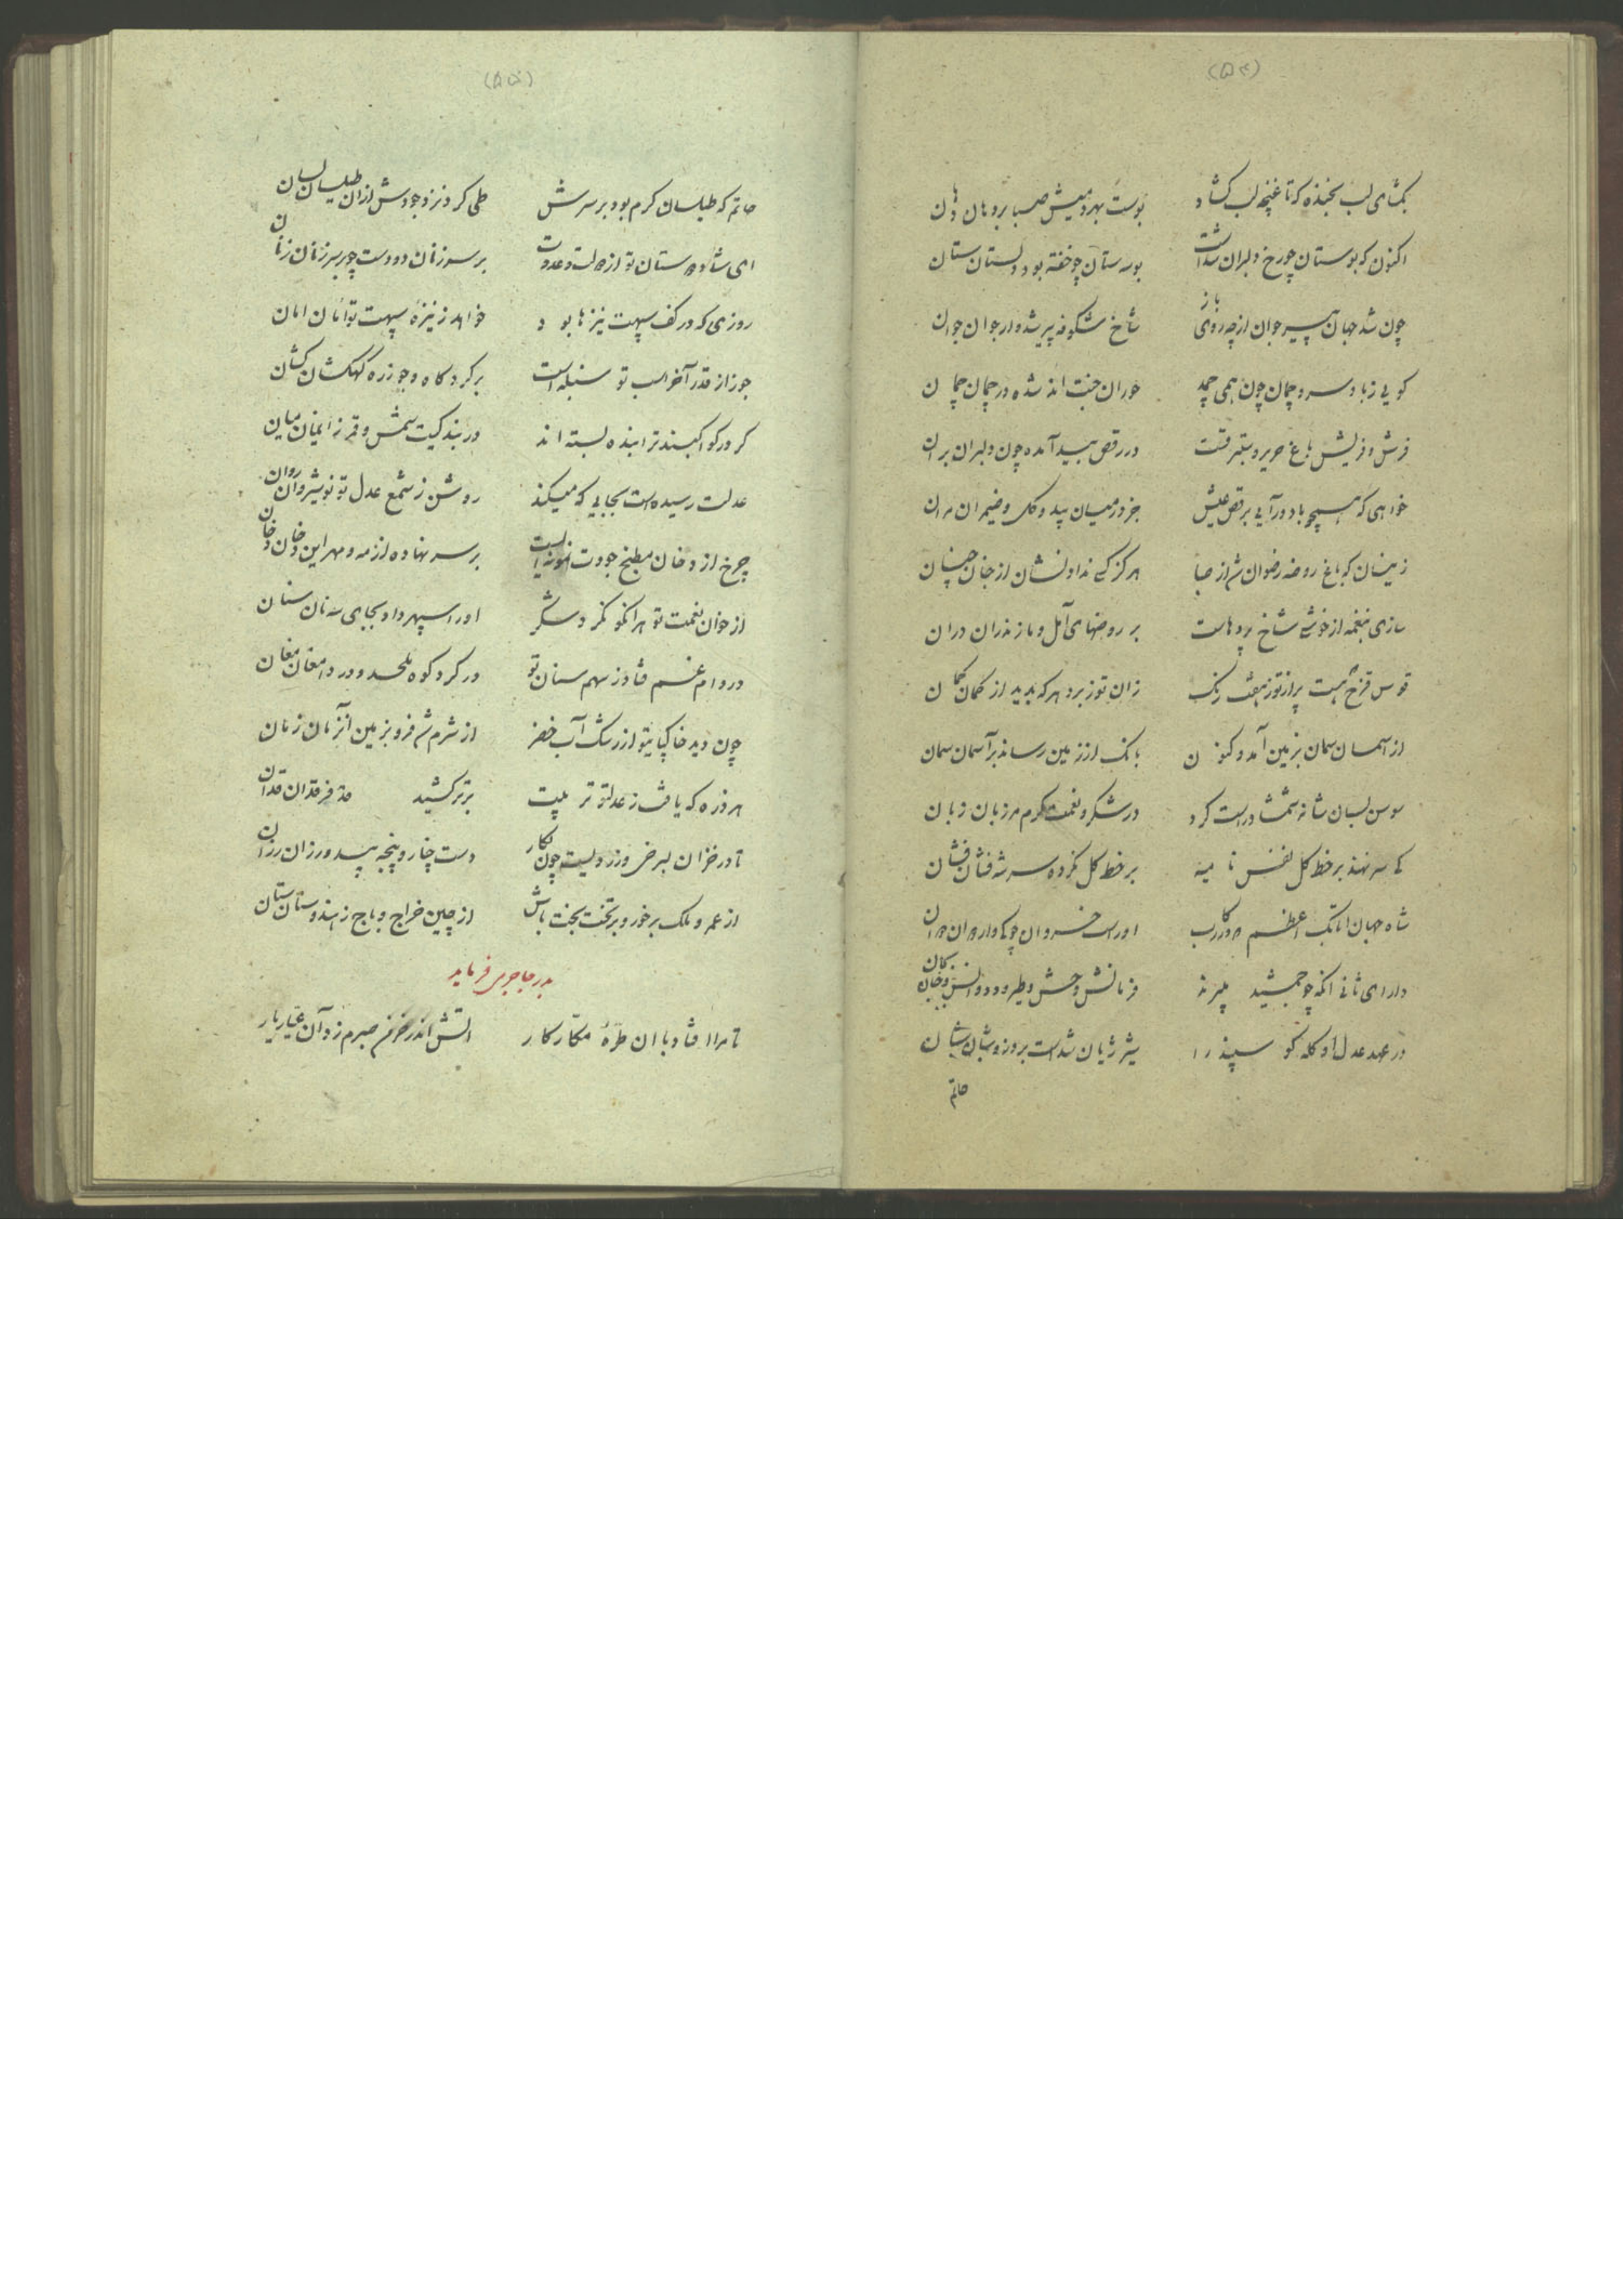 (۵۴)
بگشای لب بخنده که تا غنچه لب گشاد بوست بهر دمیش صبا بر دهان دهان
اکنون که بوستان چو رخ دلبران شداست بوسه ستان چو خفته بود دلستان ستان
چون شد جهان پیر جوان از چه روی باز شاخ شکوفه پیر شد و ارجوان جوان
گویی زباد سرو چمان چون همی چمد حوران جنت اند شده در چمان چمان
فرش و فریش باغ حریر و ستبرقت در رقص بید آمده چون دلبران بران
خواهی که همچو باد درآیی برقص عیش جز در میان بید و گل و ضیمران مران
زینسان که باغ روضه رضوان شد از صبا هرگز کسی نداد نشان از جنان چنان
سازی بنغمه از خوشی شاخ پردهاست بر روضهای آمل و مازندران دران
قوس قزح هست پر از توز هفت رنگ زان توز برد هر که بدید از کمان کمان
از آسمان سمان بزمین آمد و کنون بانگ از زمین رساند بر آسمان سمان
سوسن بسان شانه شمشاد راست کرد در شکر و نعمت کرم مرزبان زبان
که سر نهند بر خط کل نفس نامیه بر خط کل نکرده سر سرفشان فشان
شاه جهان اتابک اعظم اوراست خسروان چو
دارای ثانی آنکه چو جمشید فرمانش وحش و طیر و دد و انس و جان
در عهد عدل او کله گوسپند را شیر ژیان شداست بروز و شبان شبان
حاتم
(۵۵)
حاتم که طیلسان کرم بود بر سرش طی کرد نزد جودش ازان طیلسان لسان
ای شاد دوستان تو از دولت و عدوت بر سر زنان دو دست چو بر سر زنان زنان
روزی که در کف سپهت نیزها بود خواهد ز نیزه سپهت توأمان امان
جوزا ز قدر آخر اسب تو سنبله است بر کرد کاه و جو زره کهکشان کشان
کر در کواکبند ترا بنده بسته اند در بندگیت شمس و قمر زانمیان میان
عدلت رسیده است بجایی که میکند روشن ز شمع عدل تو نوشیروان روان
چرخ از دخان مطبخ جودت نمونه ایست بر سر نهاده از مه و مهر این دخان دخان
از خوان نعمت تو هرانکو نکرد شکر او را سپهر داد بجای سه نان سنان
در دام غم فتاد ز سهم سنان تو در کرد کوه ملحد و در دامغان مغان
چون دید خاکپای تو از رشک آب خضر از شرم شد فرو بزمین آنزمان زمان
هر ذره که یافت ز عدل تو تربیت برتر کشید ز فرقدان قدان
تا در خزان لبرخ ورزد لیست چون نگار دست چنار و پنجه بید و رزان رزان
از عمر و ملک برخور و بر تخت بخت باش از چین خراج و باج ز هندوستان ستان
بدر جاجرمی فرماید
تا مرا افتاد با آن طره مکار کار آتش اندر خرمن صبرم زد آن عیار یار